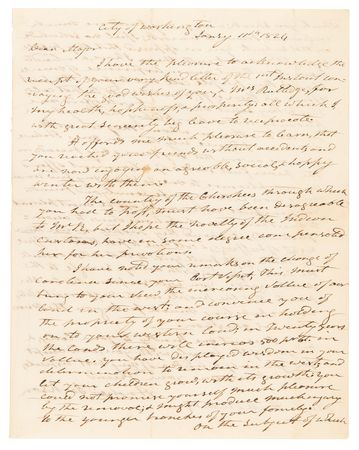 City of Washington
Janry 11th 1824
Dear Major
I have the pleasure to acknowledge the
receipt of your very kind letter of the 1st Instant con
veying the good wishes of you, & Mrs Rutledge, for
my health, happiness, & prosperity, all which I
with great sincerity beg leave to reciprocate
It affords me much pleasure to learn, that
you reached your friends without accident, and
are now enjoying an agreeable, social, & happy
winter with them
The country of the Cherokees through which
you had to pass, must have been disagreeable
to Mrs R, but I hope the novelty of the Indian
customs, have in some degree compensated
her for her privations
I have noted your remarks on the change of
Carolina since your last visit, This must
bring to your view, the increasing vallue of our
land in the west, and convince you of
the propriety of your course in holding
on to your western land, in Twenty years
the lands there will increase 500 pct in
vallue. you have displayed wisdom in your
determination to remain in the west, and
let your children grow with its growth. you
could not promise yourself much pleasure
by the removal, & might produce much injury
to the younger branches of your family.
On the subject of which